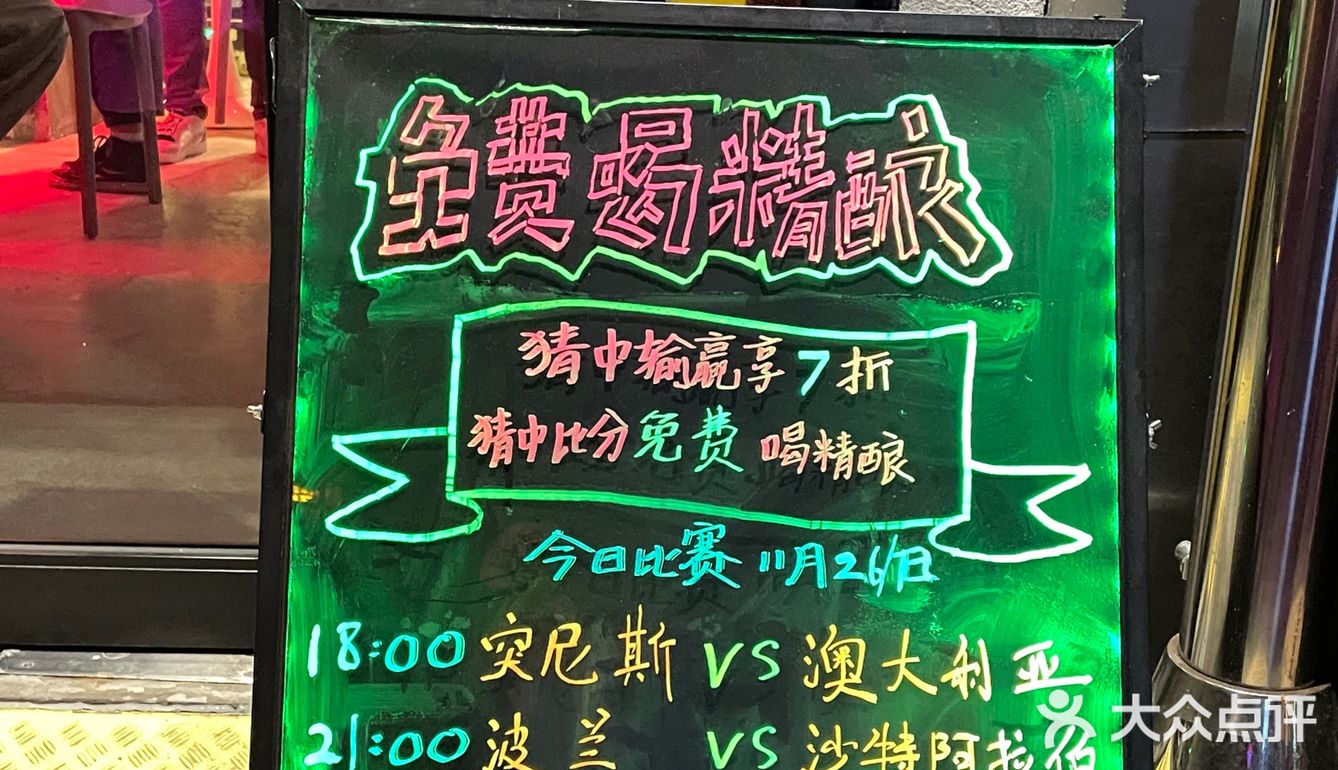 免费喝精酿
猜中输赢享7折
猜中比分免费喝精酿
今日比赛 11月26日
18:00 突尼斯 VS 澳大利亚
21:00 波兰 VS 沙特阿拉伯
大众点评